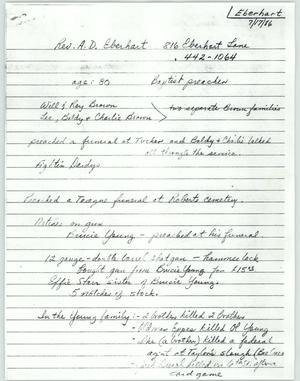 Eberhart
7/17/86
Rev. A.D. Eberhart 816 Eberhart Lane
442-1064
age: 80 Baptist preacher
Will & Kay Brown
Lee, Baldy & Charlie Brown
two separate Brown families
preached a funeral at Tucker and Baldy & Charlie talked
all through the service.
Fightin Dandys
Preached a Teague funeral at Roberts cemetery.
Notches on gun
Buscie Young - preached at his funeral.
12 gauge - double barrel shotgun - hammer lock
bought gun from Buscie Young for $15
Effie Starr sister of Buscie Young.
5 notches of stock.
In the Young family: - 2 brothers killed 2 brothers
- Oldman Eppes killed Ol Young
- (a brother) killed a federal
agent at Taylors Slough
- killed on 6th St. after a
card game